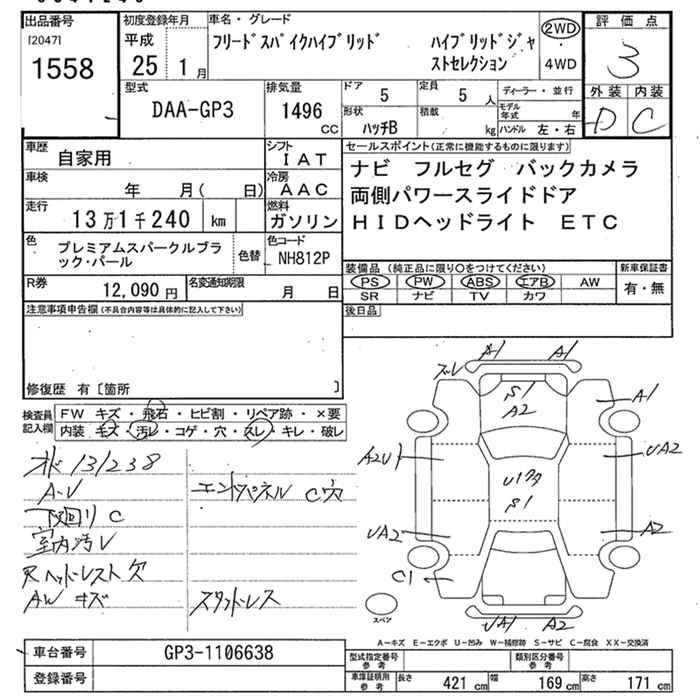 出品番号
[2047]
1558
初度登録年月
平成
25 1 月
車名・グレード
フリードスパイクハイブリッド ハイブリッドジャ
ストセレクション
2WD
・
4WD
評価点
3
外装 内装
D C
型式
DAA-GP3
排気量
1496
CC
ドア 5
定員 5 人
形状 ハッチB
積載 kg
ディーラー・並行
モデル
年式 年
ハンドル 左・右
車歴
自家用
シフト
IAT
車検
年 月( 日)
冷房
AAC
走行
13万1千240 km
燃料
ガソリン
色
プレミアムスパークルブラ
ック・パール
色替
色コード
NH812P
R券
12,090 円
名変通知期限
月 日
セールスポイント(正常に機能するものに限ります)
ナビ フルセグ バックカメラ
両側パワースライドドア
HIDヘッドライト ETC
装備品 (純正品に限り○をつけてください)
PS PW ABS エアB AW
SR ナビ TV カワ
新車保証書
有・無
後日品
注意事項申告欄(不具合内容等は具体的に記入して下さい)
修復歴 有〔箇所 〕
検査員
記入欄
FW キズ・飛石・ヒビ割・リペア跡・×要
内装 キズ・汚レ・コゲ・穴・スレ・キレ・破レ
131238
A-V
下回リ C
室内汚レ
R ヘッドレスト欠
AW キズ
C穴
スタッドレス
ズレ
A1 A1
S1
A2
A1
A2U1
UA2
S1
UA2
A2
C1
UA1 A2
スペア
A―キズ E―エクボ U―凹み W―補修跡 S―サビ C―腐食 XX―交換済
車台番号
GP3-1106638
登録番号
型式指定番号
参考
類別区分番号
参考
車庫証明用
参考
長さ 421 cm
幅 169 cm
高さ 171 cm